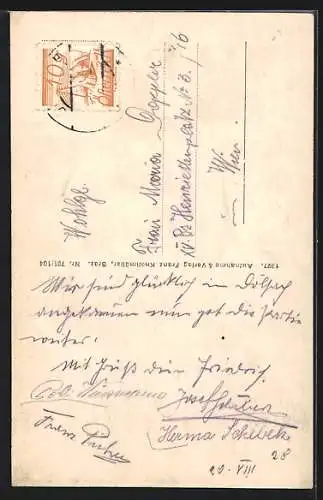 10
Wohlgb.
Frau Maria Doppler
XV. Bz Henriettenplatz No 3. / 16
Wien
1927. Aufnahme & Verlag Franz Knollmüller, Graz. Nr. 701/104
Wir sind glücklich in Dölsach
angekommen nun geht die Partie
weiter.
Mit Gruß dein Friedrich
Josef
Franz
Herma
28
20 - VIII